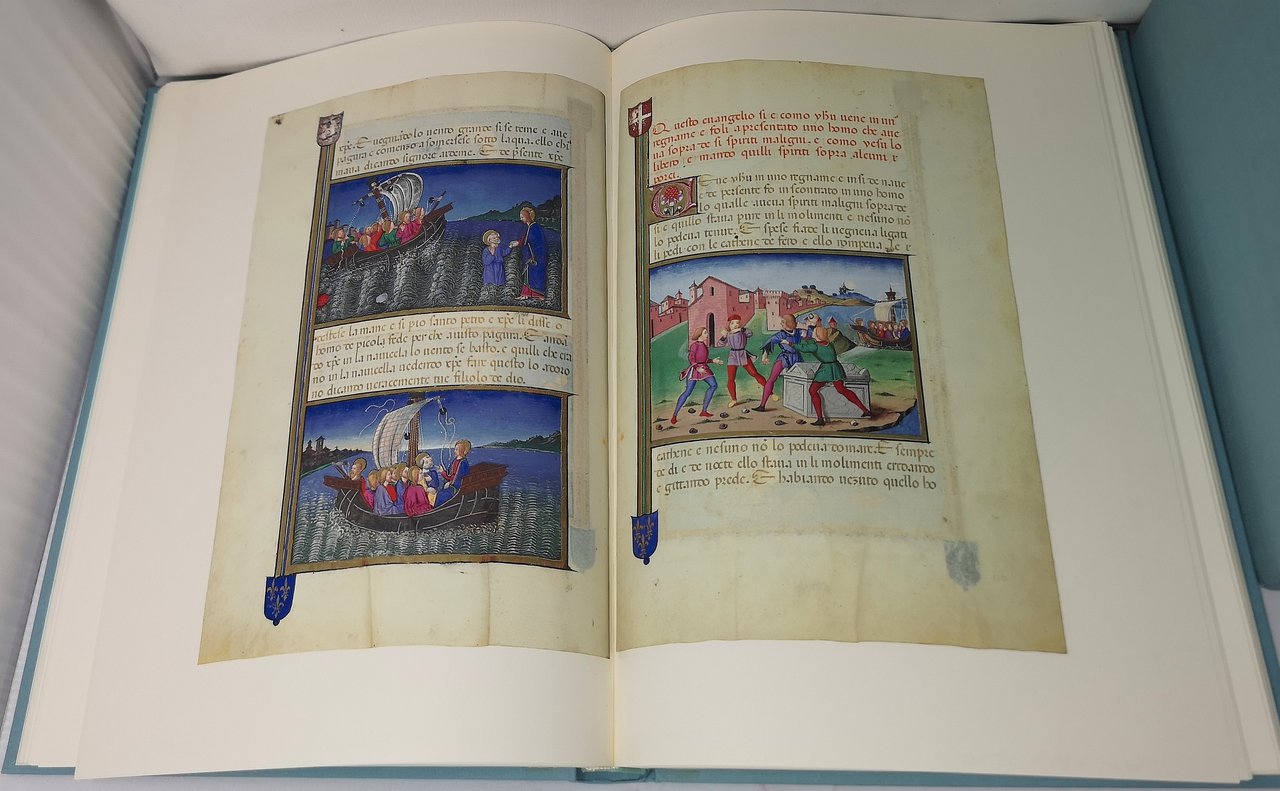 xpe. E uegnando lo uento grande si se teme e aue
pagura e comenzo a somersese sotto laqua. ello chi
maua dicando signore aideme. E de p̃sente xpe
destese la mane e si pro santo petro e xpe li disse o
homo de picola fede per che auisto pagura. E intrando
do xpe in la nauicela lo uento se basto. e quilli che era
no in la nauicella uedendo xpe fare questo lo adoro
no dicando ueracemente tue filiolo de dio.
Questo euangelio si e como yhu uene in un
regname e foli apresentato uno homo che aue
ua sopra de si spiriti maligni. e como yesu lo
libero, e mando quilli spiriti sopra alcuni p
porci.
ene yhu in uno regname e insi de naue
e de persente fo inscontrato in uno homo
lo qualle aueua spiriti maligni sopra de
si e quillo staua pure in li molimenti e nesuno nõ
lo podeua tenire. E spese fiade li uegneua ligati
li pedi con le cathene de fero e ello rompeua le
cathene e nesuno nõ lo podeua domare. E sempre
de di e de nocte ello staua in li molimenti cridando
e gittando prede. E habiando uezuto quello ho